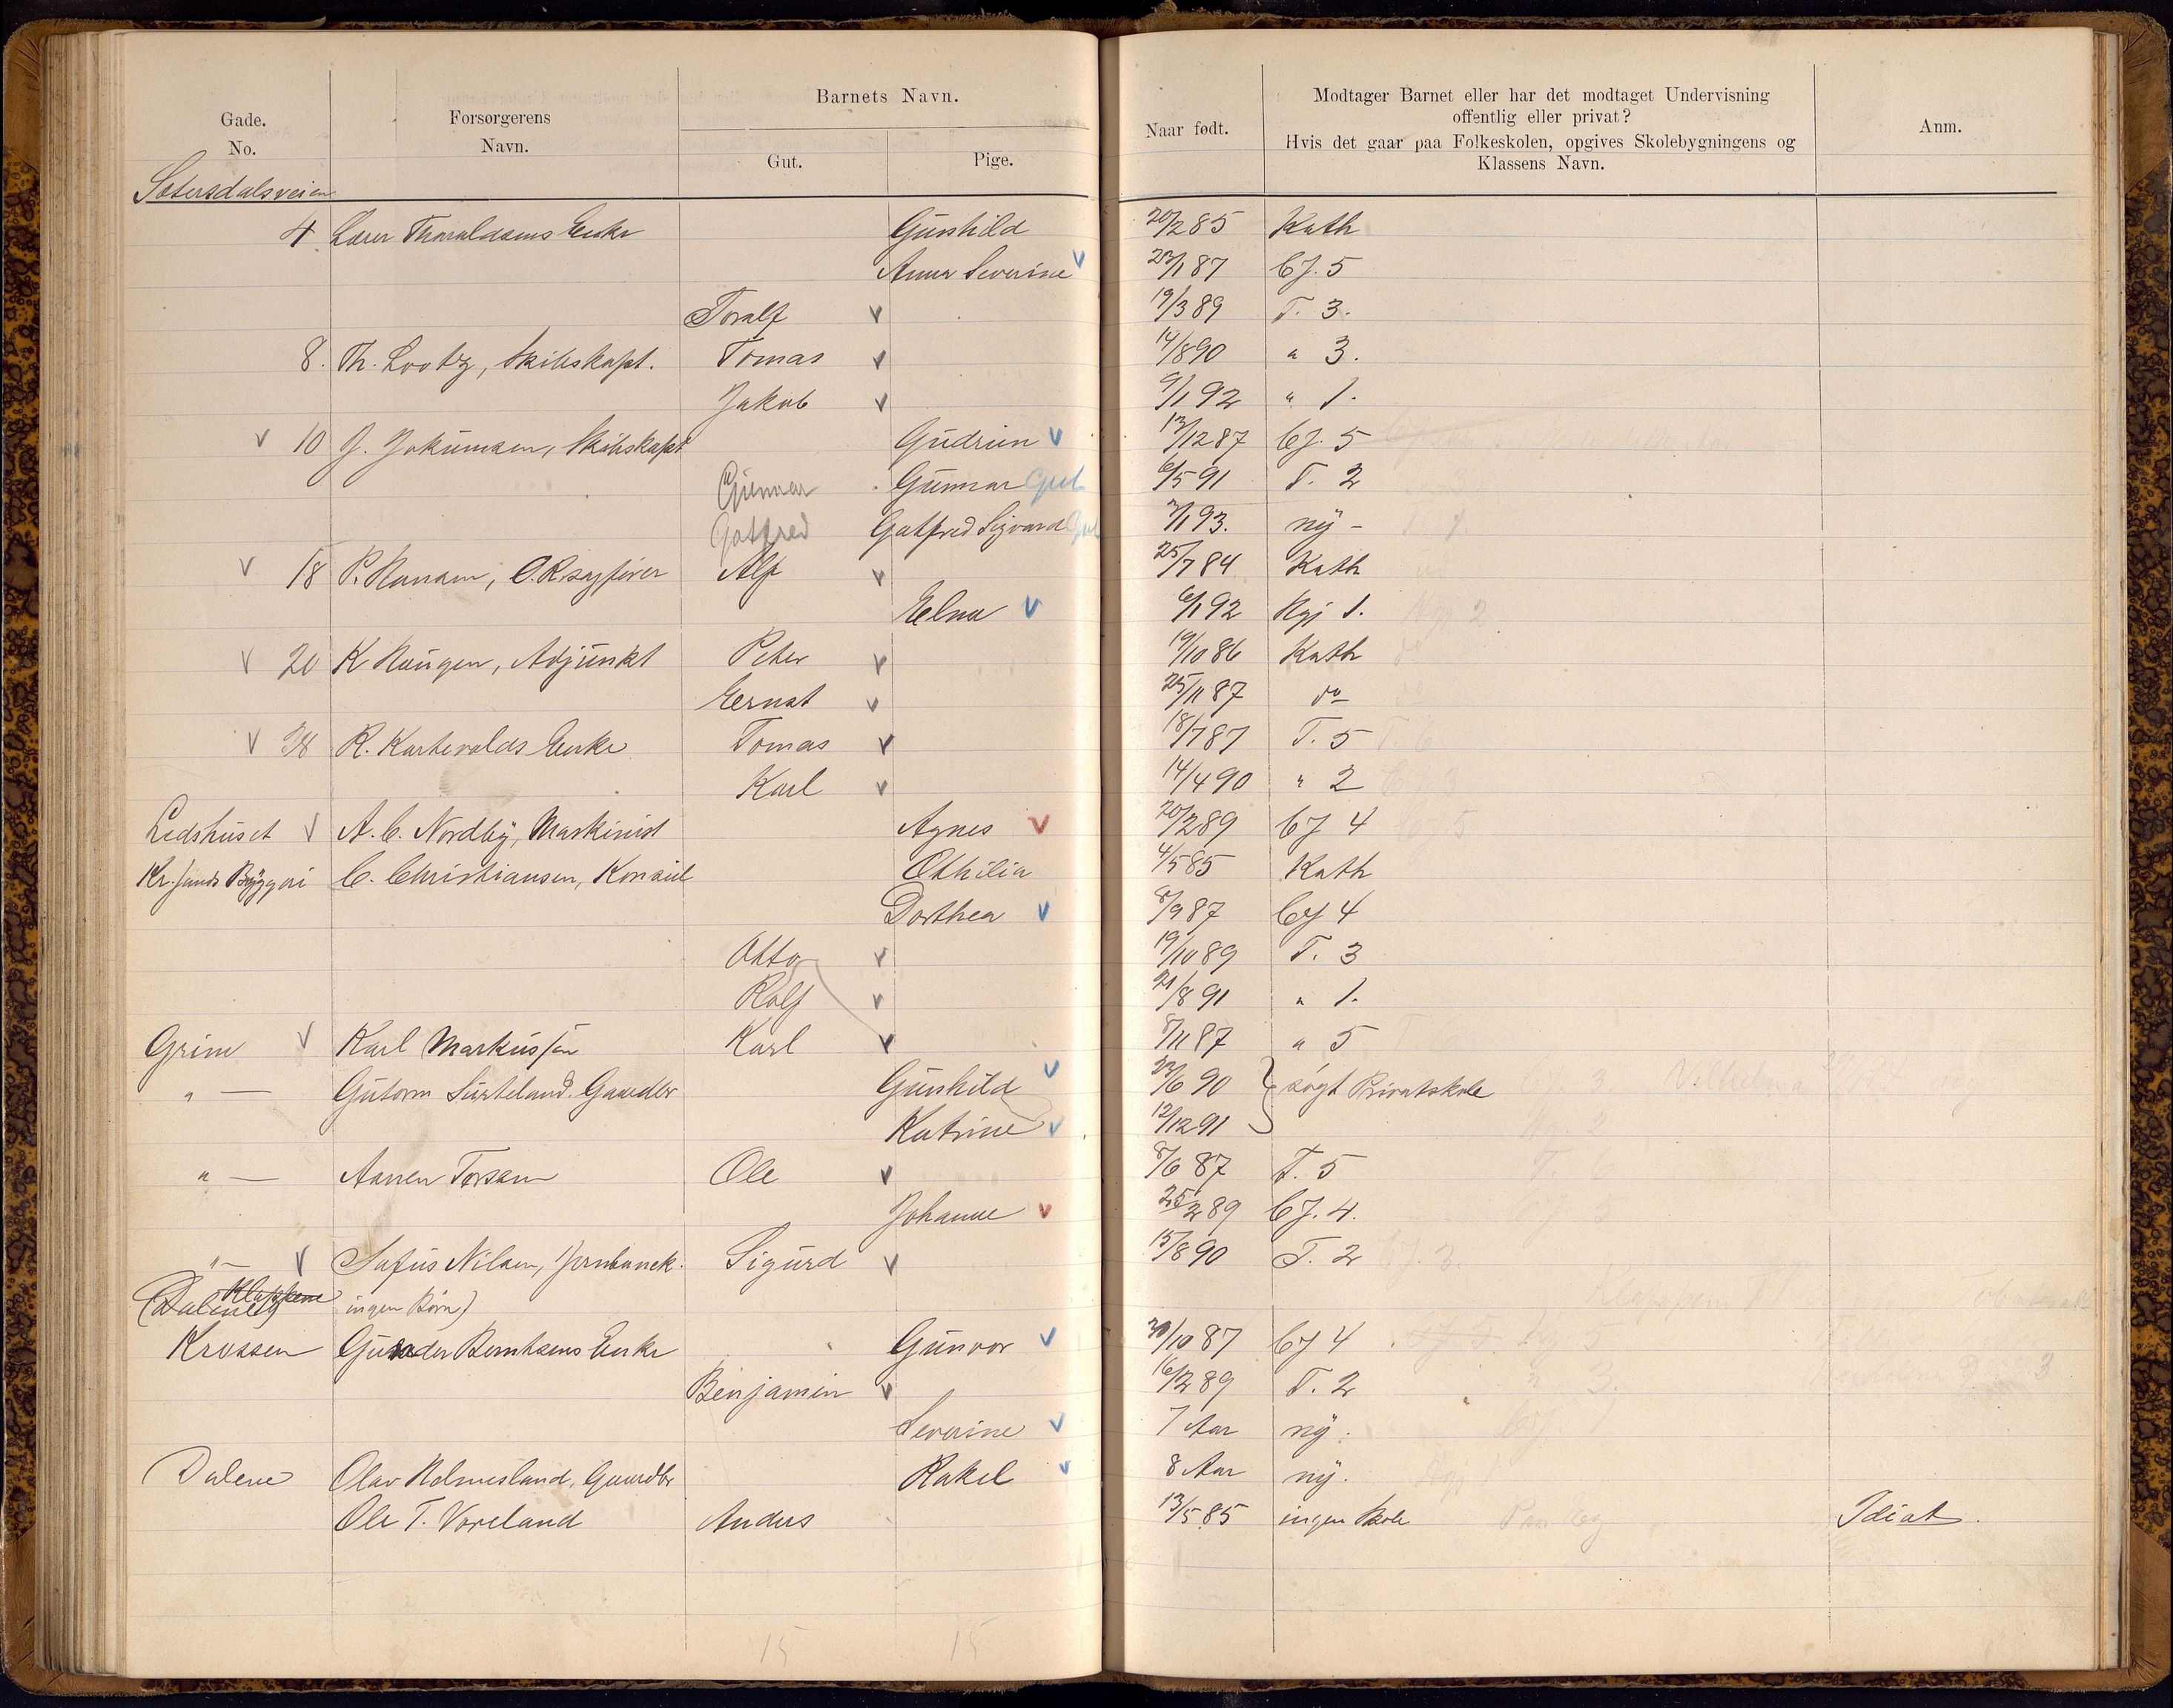 Gade.
No.
Forsørgerens
Navn.
Barnets Navn.
Gut.
Pige.
Naar født.
Modtager Barnet eller har det modtaget Undervisning
offentlig eller privat?
Hvis det gaar paa Folkeskolen, opgives Skolebygningens og
Klassens Navn.
Anm.
Setersdalsveien
4 Lærer Thoraldsens Enke Gunhild 20/2 85 Kath
Anna Severine v 23/1 87 CJ. 5
Toralf v 19/3 89 T. 3.
8. Th. Lootz, Skibskapt. Tomas v 14/8 90 " 3.
Jakob v 9/1 92 " 1.
v 10 J. Jokumsen, Skibskapt Gudrun v 13/12 87 CJ. 5
Gunnar Gunnar Gut 6/5 91 T. 2
Gotfred Gotfred Sigvard Gut 7/1 93. ny -
v 18 P. Hansen, O.R.sagfører Alf v 25/7 84 Kath
Elna v 6/1 92 Kgj 1. Kgj 2
v 20 K Haugen, Adjunkt Peter v 19/10 86 Kath do
Ernst v 25/11 87 do
v 38 R. Kartevolds Enke Tomas v 18/7 87 T. 5 T. 6
Karl v 14/4 90 " 2
Ledshuset v A. C. Nordby, Maskinist Agnes v 20/2 89 CJ 4 CJ 5
Kr.sands Bryggeri C. Christiansen, Konsul Othilia 4/5 85 Kath
Dorthea v 8/9 87 CJ 4
Otto v 19/10 89 T. 3
Rolf v 21/8 91 " 1.
Grim v Karl Markussen Karl v 8/11 87 " 5
" — Gutorm Surteland. Gaardbr Gunhild v 23/6 90 søgt Privatskole
Katrine v 12/12 91
" — Aanen Torsen Ole v 8/6 87 T. 5
Johanne v 25/2 89 CJ. 4.
" — v Sofus Nilsen, Jernbanek. Sigurd v 15/8 90 T. 2
(Dalene Kleppene ingen Børn)
Krossen Gunder Berntsens Enke Gunvor v 30/10 87 CJ 4
Benjamin v 16/2 89 T. 2
Severine v 7 Aar ny.
Dalene Olav Holmesland, Gaardbr Rakel v 8 Aar ny.
Ole T. Voreland Anders 13/5 85 ingen Skole Idiot.
15 15